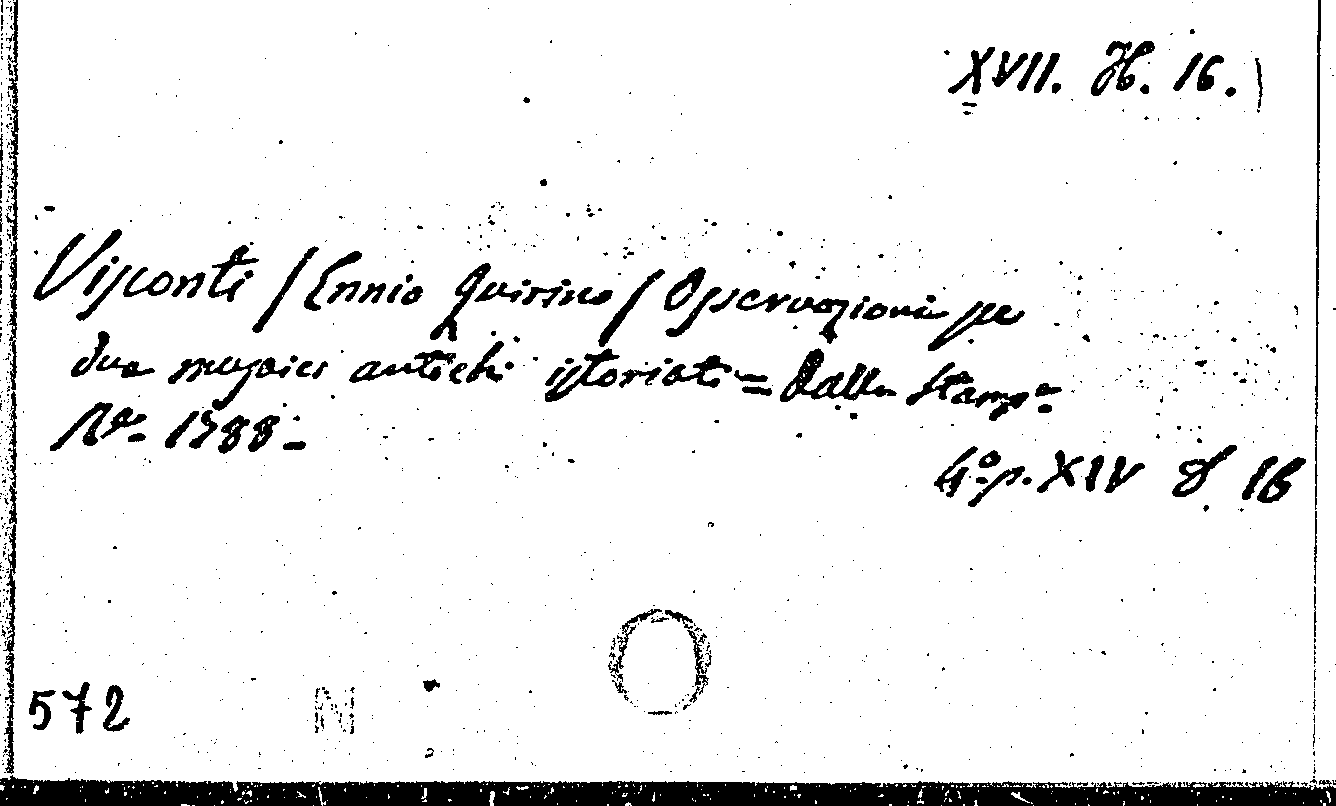 XVII. H. 16.
Visconti / Ennio Quirino / Osservazioni su
due musaici antichi istoriati = Dalla Stamp.ª
R.le 1788 -
4.º p. XIV 8 16
572
N